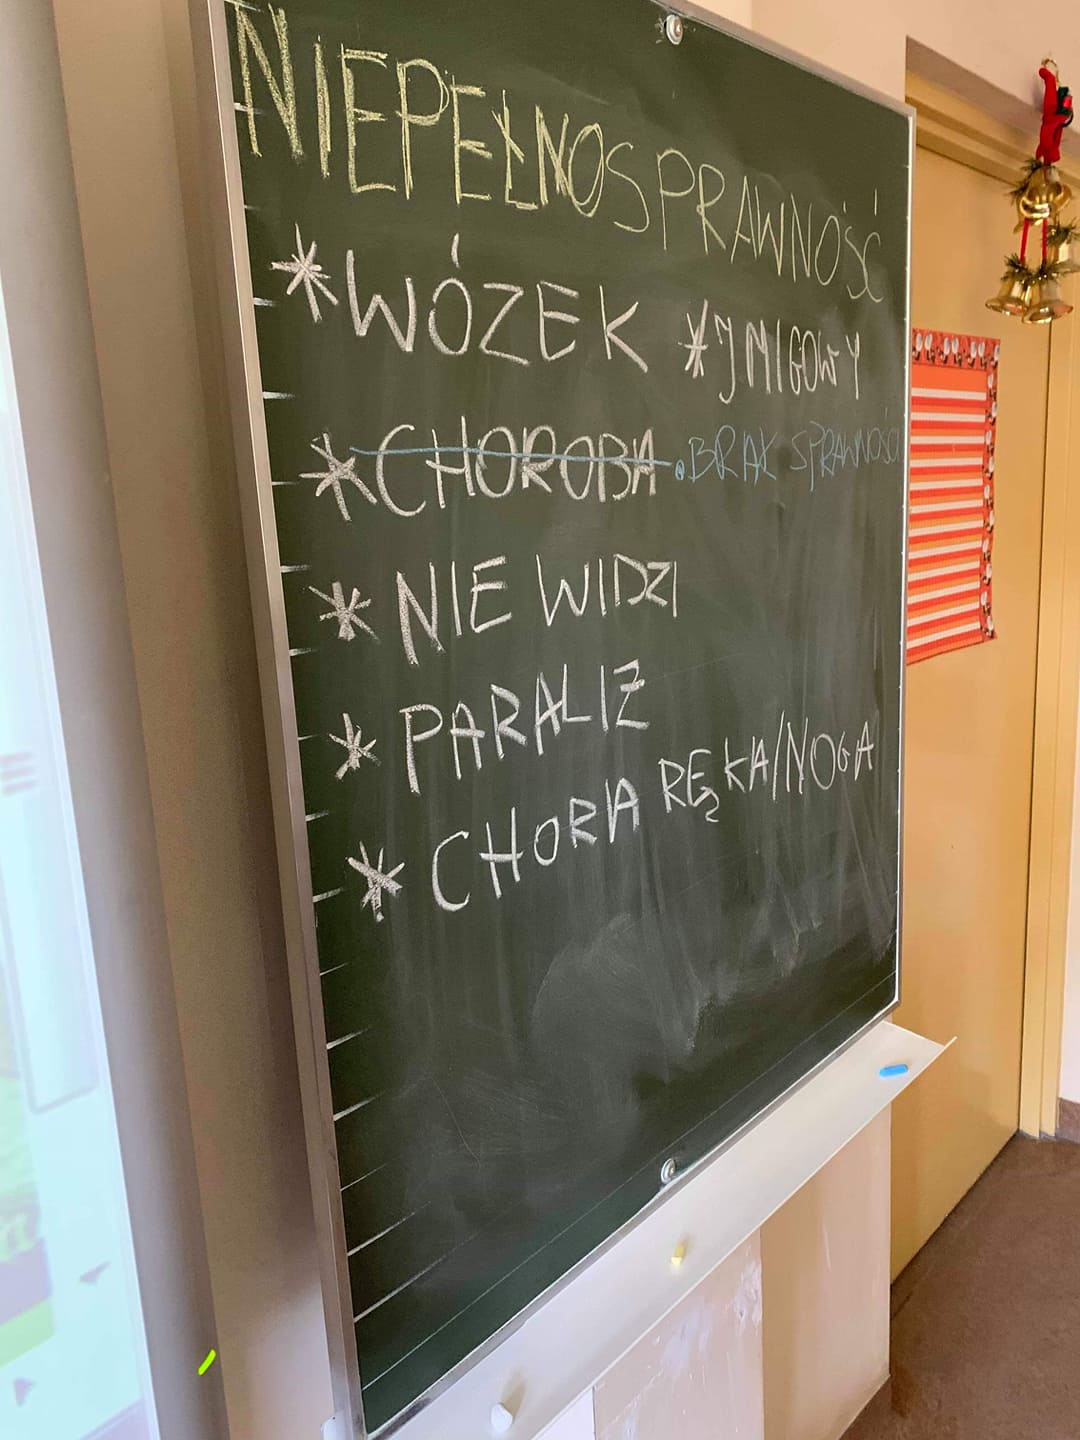 NIEPEŁNOSPRAWNOŚĆ
* WÓZEK * J MIGOWY
* CHOROBA . BRAK SPRAWNOŚCI
* NIE WIDZI
* PARALIŻ
* CHORA RĘKA/NOGA